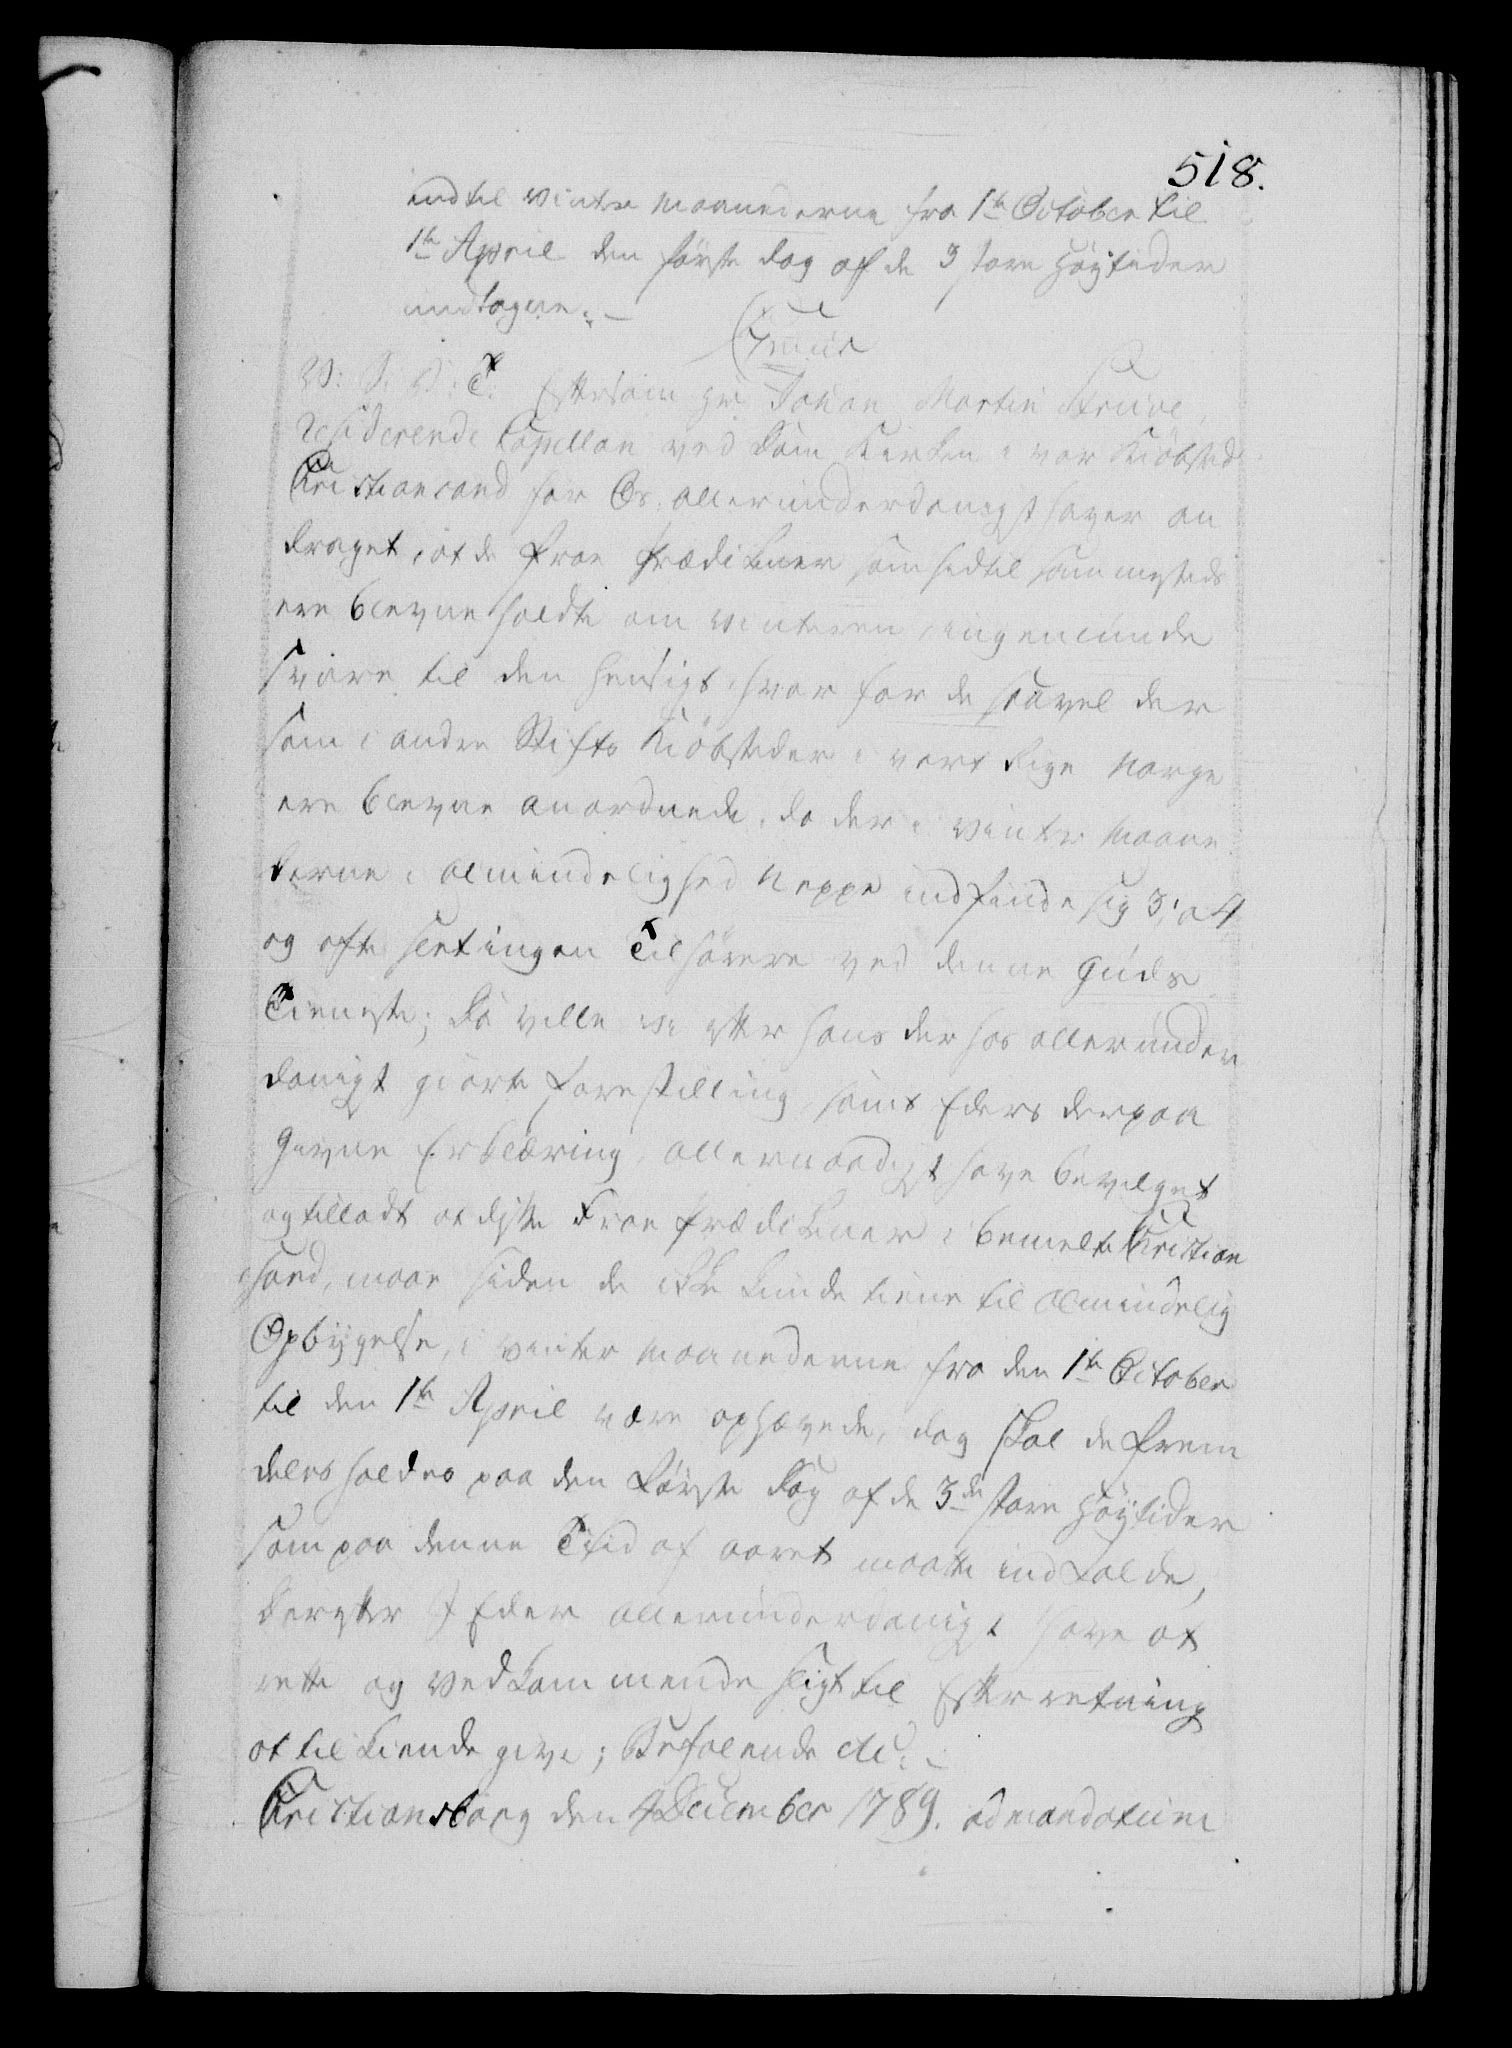 518.
indtil Vinter Maanederne fra 1te October til
1te April den første dag af de 3 store Høytider
undtagne. –
C 7mus
V: G: V: T: Eftersom Hr. Johan Martin Struve,
Residerende Capellan ved Dom Kirken i vor Kiøbsted
Christiansand for Os allerunderdanigst haver an
draget, at de Froe Prædikener som hidtil sammesteds
ere blevne holdte om Vinteren, ingenlunde
svare til den Hensigt, hvorfor de saavel der
som i andre Stifts Kiøbsteder i vort Rige Norge
ere blevne anordnede, da der i Vinter Maane
derne i Almindelighed neppe indfinde sig 3, a 4
og ofte slet ingen Tilhørere ved denne Guds
Tieneste; Da ville vi efter hans derhos allerunder
danigst giorte Forestilling, samt Eders derpaa
givne Erklæring, allernaadigst have bevilget
og tilladt at disse Froe Prædikener i bemelte Christian
sand, maae siden de ikke kunde tiene til almindelig
Opbyggelse, i Vinter Maanederne fra den 1te October
til den 1te April være ophævede, dog skal de frem
deles holdes paa den Første Dag af de 3de store Høytider
som paa denne Tiid af aaret maatte indfalde,
Derefter I Eder allerunderdanigst have at
rette og vedkommende sligt til Efterretning
at tilkiende give; Befalende etc. –
Christiansborg den 4 December 1789. ad mandatum